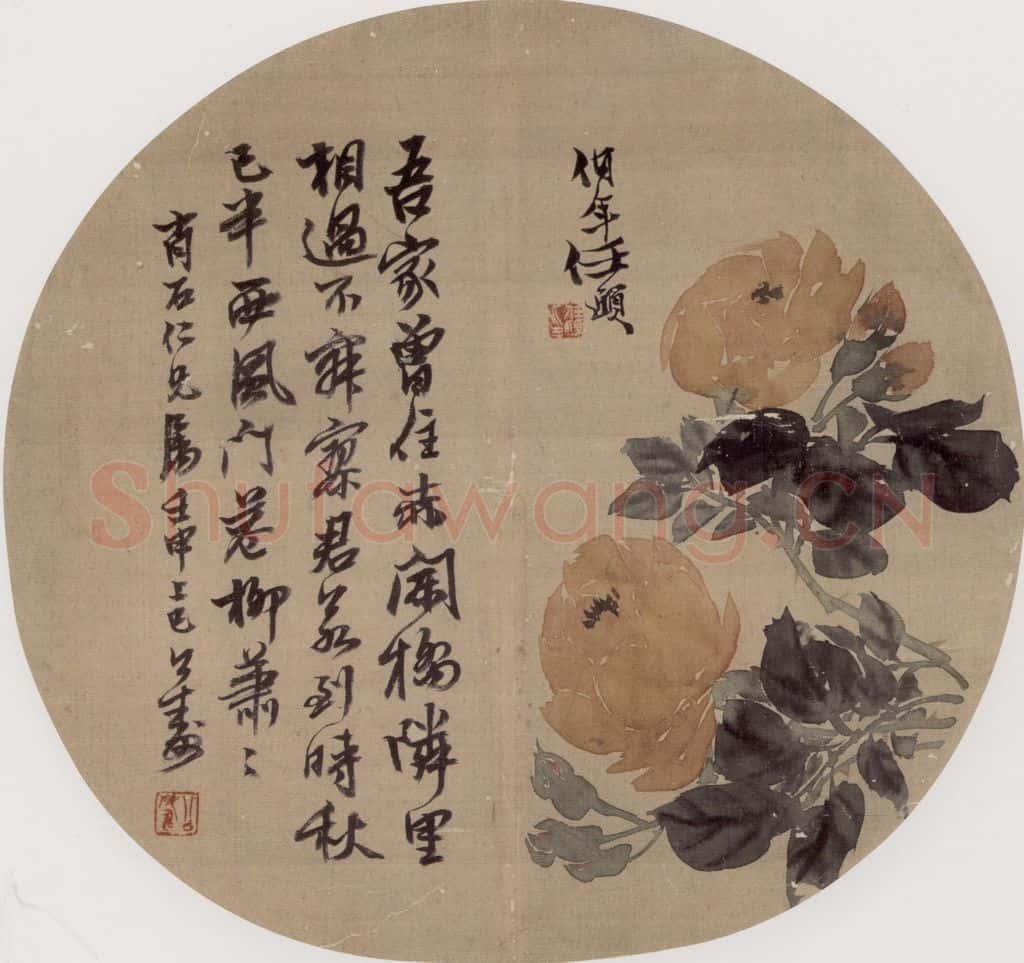 伯年任頤
吾家曾住赤闌橋隣里
相過不寂寥君若到時秋
已半西風門巷柳蕭〻
肖石仁兄属壬申上巳公壽
Shufawang.CN